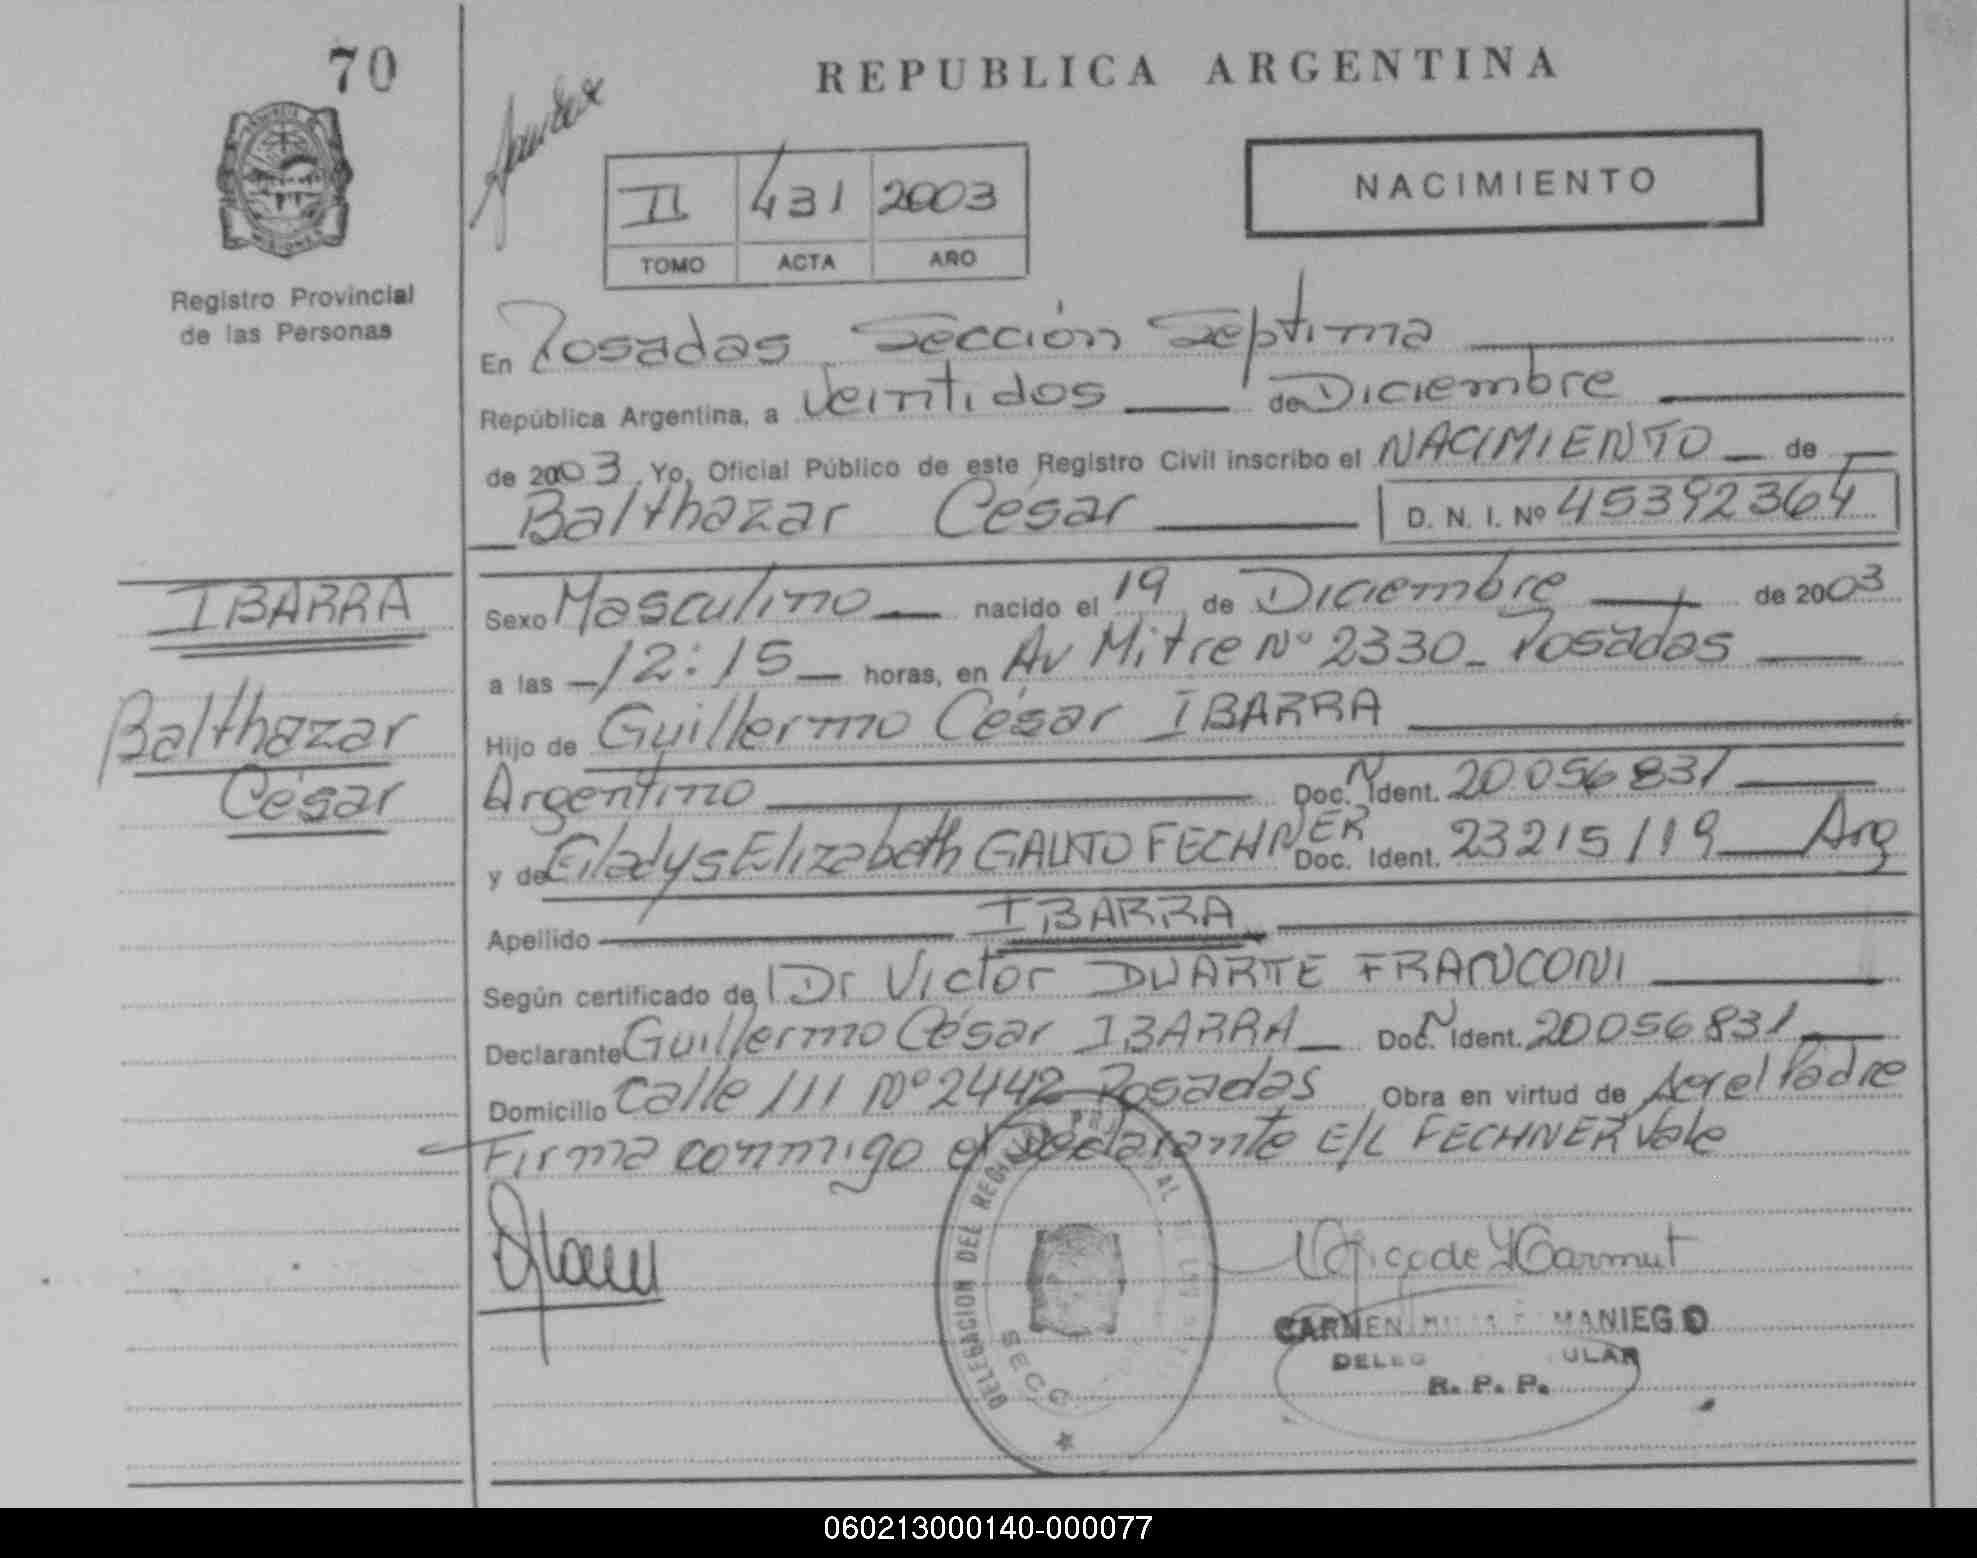 70
REPUBLICA ARGENTINA
II 431 2003
TOMO ACTA AÑO
NACIMIENTO
Registro Provincial
de las Personas
En Posadas Sección Septima
República Argentina, a Veintidos de Diciembre
de 2003 Yo, Oficial Público de este Registro Civil inscribo el NACIMIENTO de
Balthazar César D. N. I. Nº 45392364
IBARRA
Balthazar
César
Sexo Masculino nacido el 19 de Diciembre de 2003
a las 12:15 horas, en Av Mitre Nº 2330 Posadas
Hijo de Guillermo César IBARRA
Argentino Doc. N Ident. 20056831
y de Gladys Elizabeth GAUTO FECHNER Doc. Ident. 23215119 Arg
Apellido IBARRA
Según certificado de Dr Victor DUARTE FRANCONI
Declarante Guillermo César IBARRA Doc. N Ident. 20056831
Domicilio Calle 111 Nº 2442 Posadas Obra en virtud de ser el Padre
Firma conmigo el Declarante E/L FECHNER Vale
DELEGACION DEL
SECC
CARMEN MANIEGO
R. P. P.
060213000140-000077